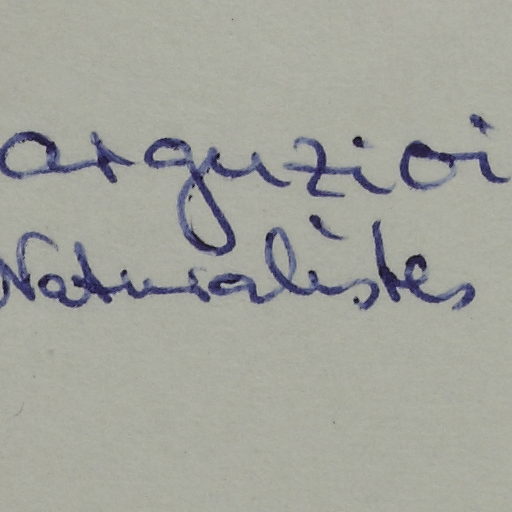 arguzioi
Naturalistes